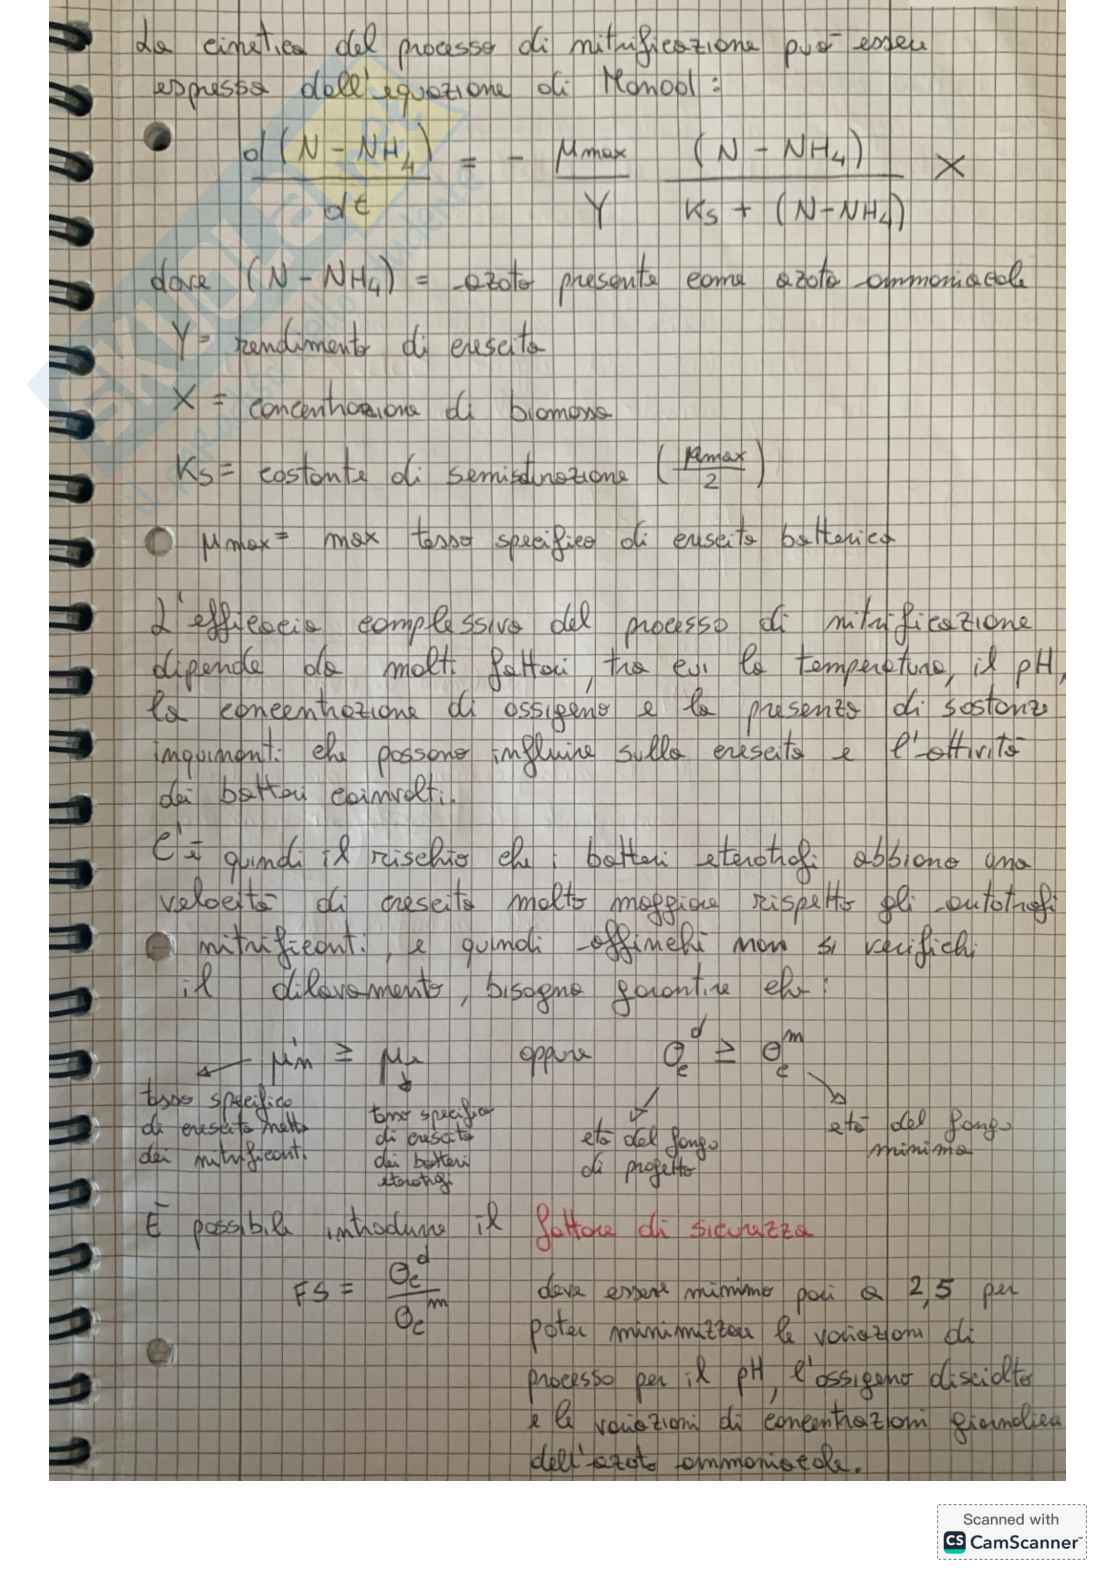 La cinetica del processo di nitrificazione può essere
espressa dall'equazione di Monod:
d(N-NH4)/dt = - μmax/Y (N-NH4)/(Ks + (N-NH4)) X
dove (N-NH4) = azoto presente come azoto ammoniacale
Y = rendimento di crescita
X = concentrazione di biomassa
Ks = costante di semisaturazione (μmax/2)
μmax = max tasso specifico di crescita batterica
L'efficacia complessiva del processo di nitrificazione
dipende da molti fattori, tra cui la temperatura, il pH,
la concentrazione di ossigeno e la presenza di sostanze
inquinanti che possono influire sulla crescita e l'attività
dei batteri coinvolti.
C'è quindi il rischio che i batteri eterotrofi abbiano una
velocità di crescita molto maggiore rispetto gli autotrofi
nitrificanti, e quindi affinché non si verifichi
il dilavamento, bisogna garantire che:
μ'n ≥ μ oppure θc^d ≥ θc^m
tasso specifico
di crescita netto
dei nitrificanti
tasso specifico
di crescita
dei batteri
eterotrofi
età del fango
di progetto
età del fango
minima
È possibile introdurre il fattore di sicurezza
FS = θc^d/θc^m
deve essere minimo pari a 2,5 per
poter minimizzare le variazioni di
processo per il pH, l'ossigeno disciolto
e le variazioni di concentrazioni giornaliera
dell'azoto ammoniacale.
Scanned with
CS CamScanner